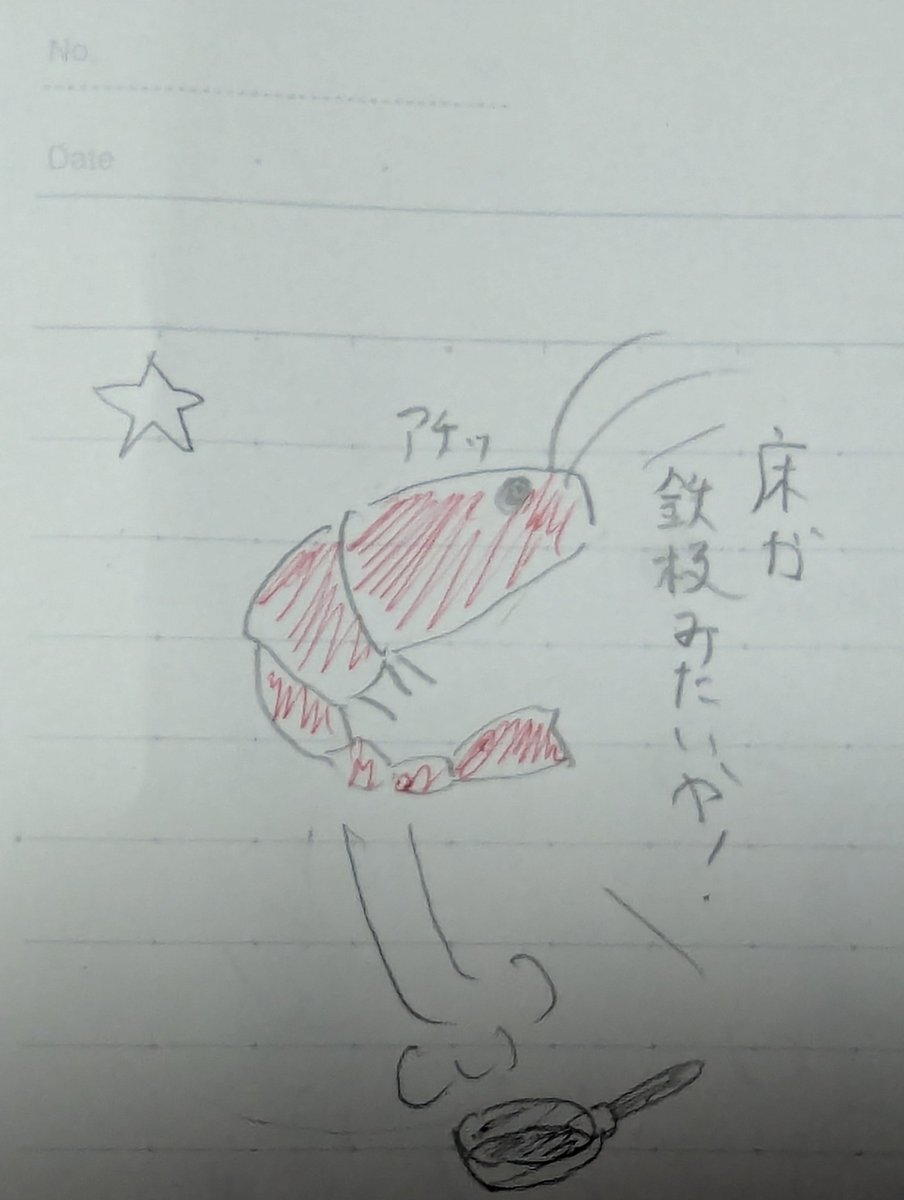 No.
Date
アチッ
床が
鉄板みたいや!